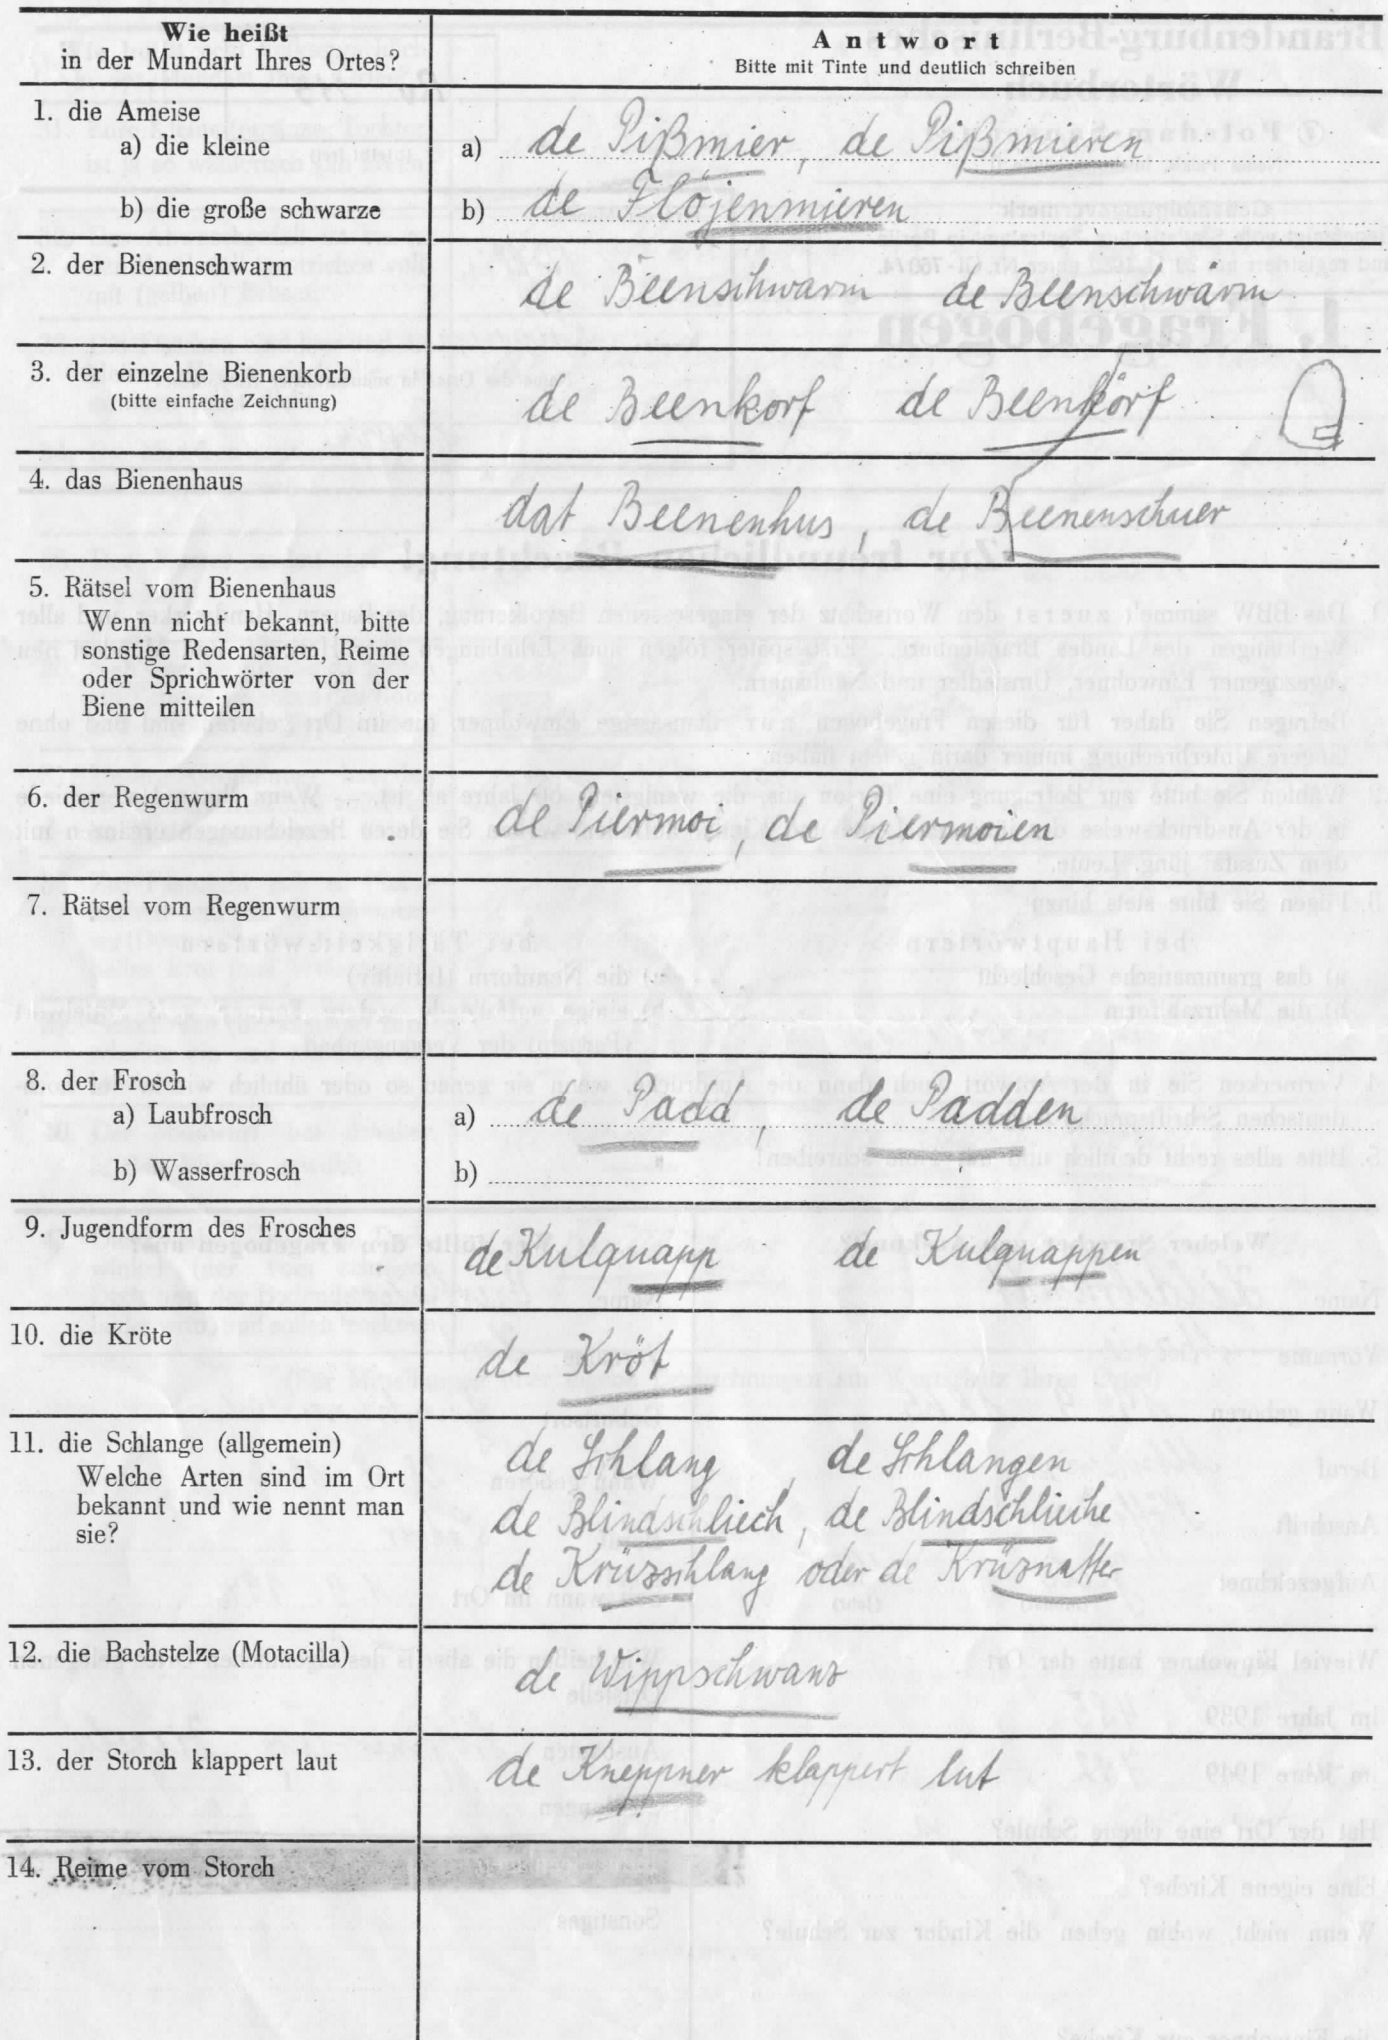 Wie heißt
in der Mundart Ihres Ortes?
Antwort
Bitte mit Tinte und deutlich schreiben
1. die Ameise
a) die kleine
a) de Pißmier, de Pißmieren
b) die große schwarze
b) de Flöjenmieren
2. der Bienenschwarm
de Beenschwarm de Beenschwärm
3. der einzelne Bienenkorb
(bitte einfache Zeichnung)
de Beenkorf de Beenkörf
4. das Bienenhaus
dat Beenenhus, de Beenenschuer
5. Rätsel vom Bienenhaus
Wenn nicht bekannt, bitte
sonstige Redensarten, Reime
oder Sprichwörter von der
Biene mitteilen
6. der Regenwurm
de Piermoi, de Piermoien
7. Rätsel vom Regenwurm
8. der Frosch
a) Laubfrosch
a) de Padd, de Padden
b) Wasserfrosch
b)
9. Jugendform des Frosches
de Kulquapp de Kulquappen
10. die Kröte
de Kröt
11. die Schlange (allgemein)
Welche Arten sind im Ort
bekannt und wie nennt man
sie?
de Schlang, de Schlangen
de Blindschliech, de Blindschlieche
de Krüzschlang oder de Krüznatter
12. die Bachstelze (Motacilla)
de Wippschwanz
13. der Storch klappert laut
de Kneppner klappert lut
14. Reime vom Storch